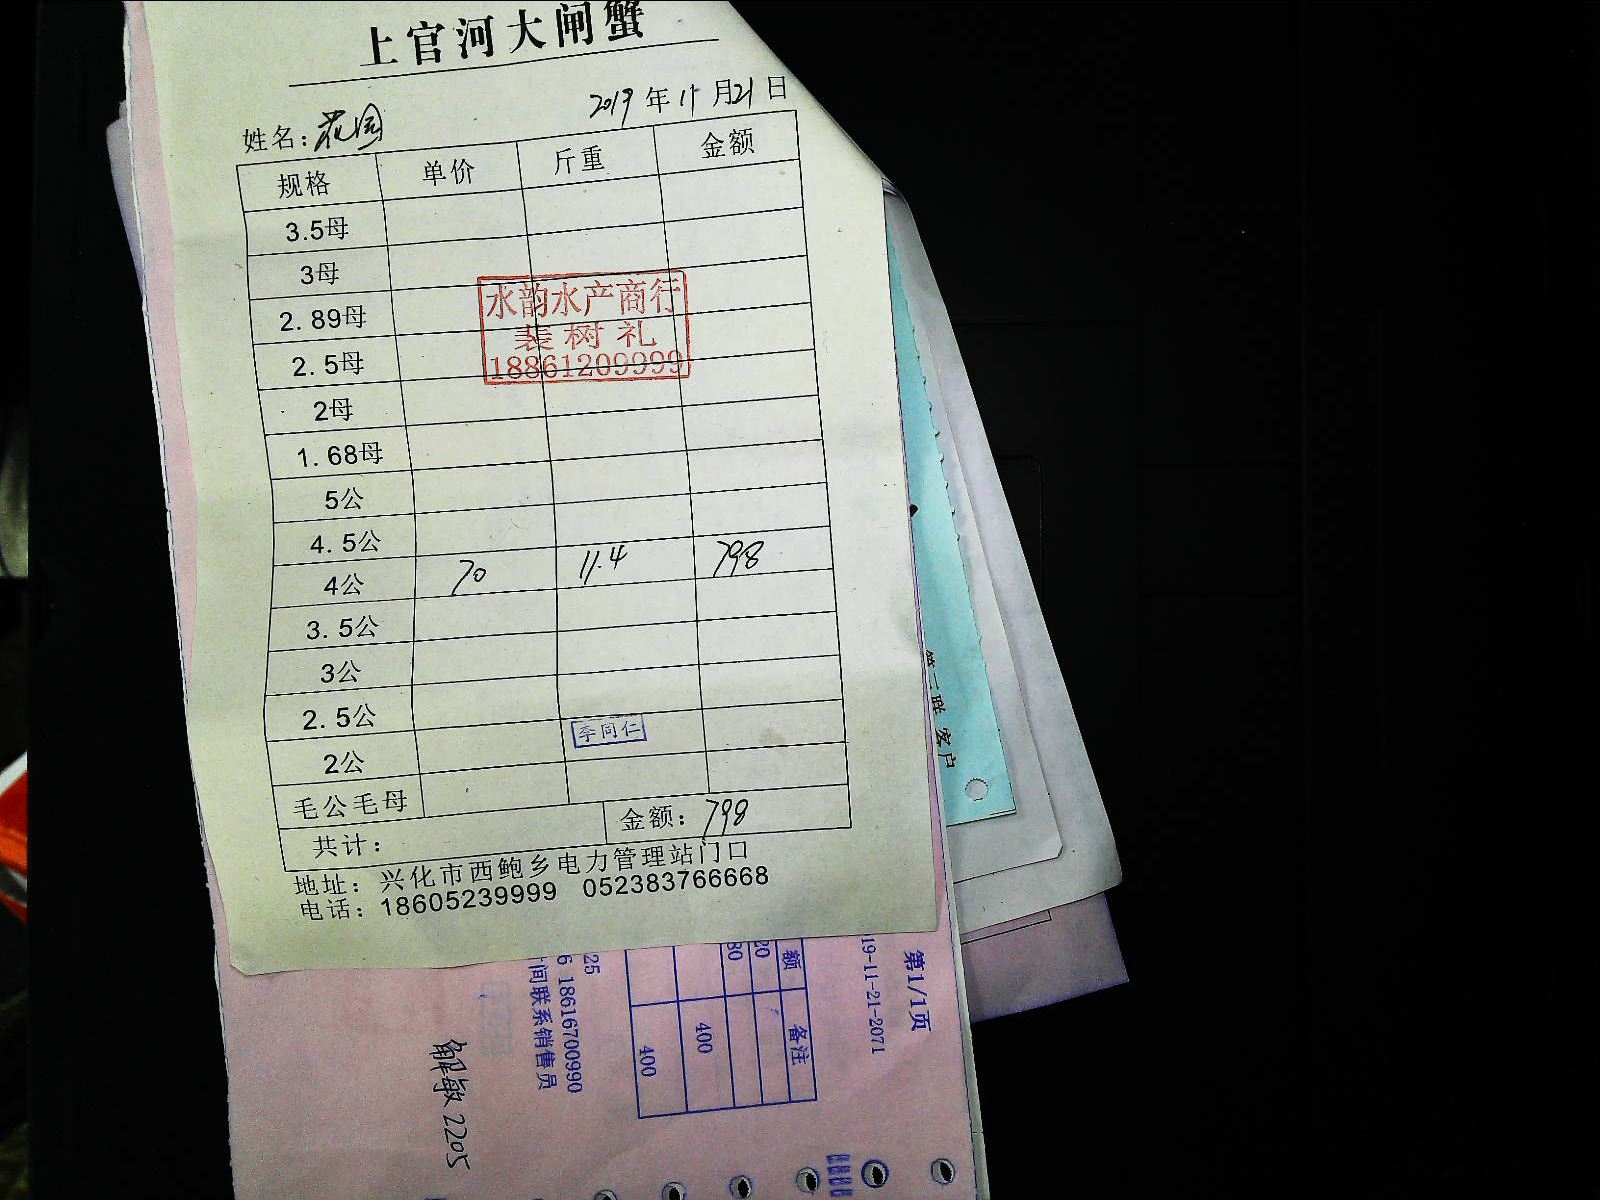 上官河大闸蟹
2019年11月21日
姓名:花园
规格 单价 斤重 金额
3.5母
3母
2.89母
2.5母
2母
1.68母
5公
4.5公
4公 70 11.4 798
3.5公
3公
2.5公
2公
毛公毛母
共计: 金额:798
地址:兴化市西鲍乡电力管理站门口
电话:18605239999 052383766668
水韵水产商行
裴树礼
18861209999
李同仁
第二联 客户
第1/1页
19-11-21-2071
额 备注
20
80
400
400
25
6 18616700990
间联系销售员
解敏 2205